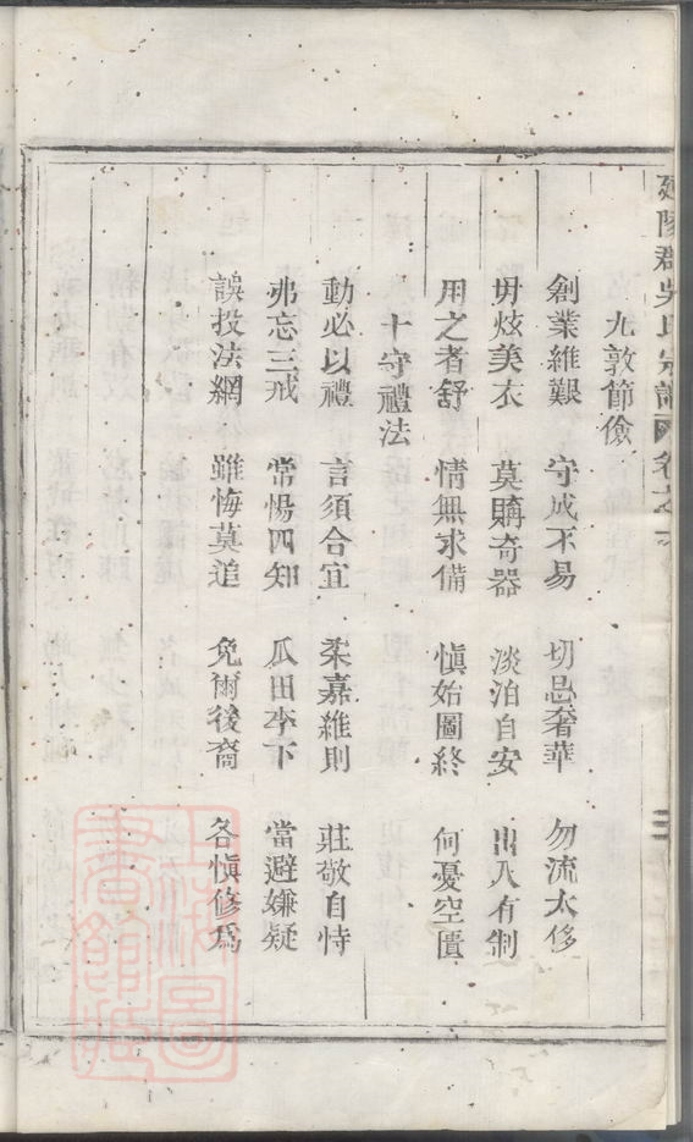 延陵郡吳氏宗譜 卷之一
九敦節儉
創業維艱 守成不易 切忌奢華 勿流太侈
毋炫美衣 莫購奇器 淡泊自安 出入有制
用之者舒 情無求備 慎始圖終 何憂空匱
十守禮法
動必以禮 言須合宜 柔嘉維則 莊敬自恃
弗忘三戒 常惕四知 瓜田李下 當避嫌疑
誤投法網 雖悔莫追 免爾後裔 各慎修為
上海圖書館藏